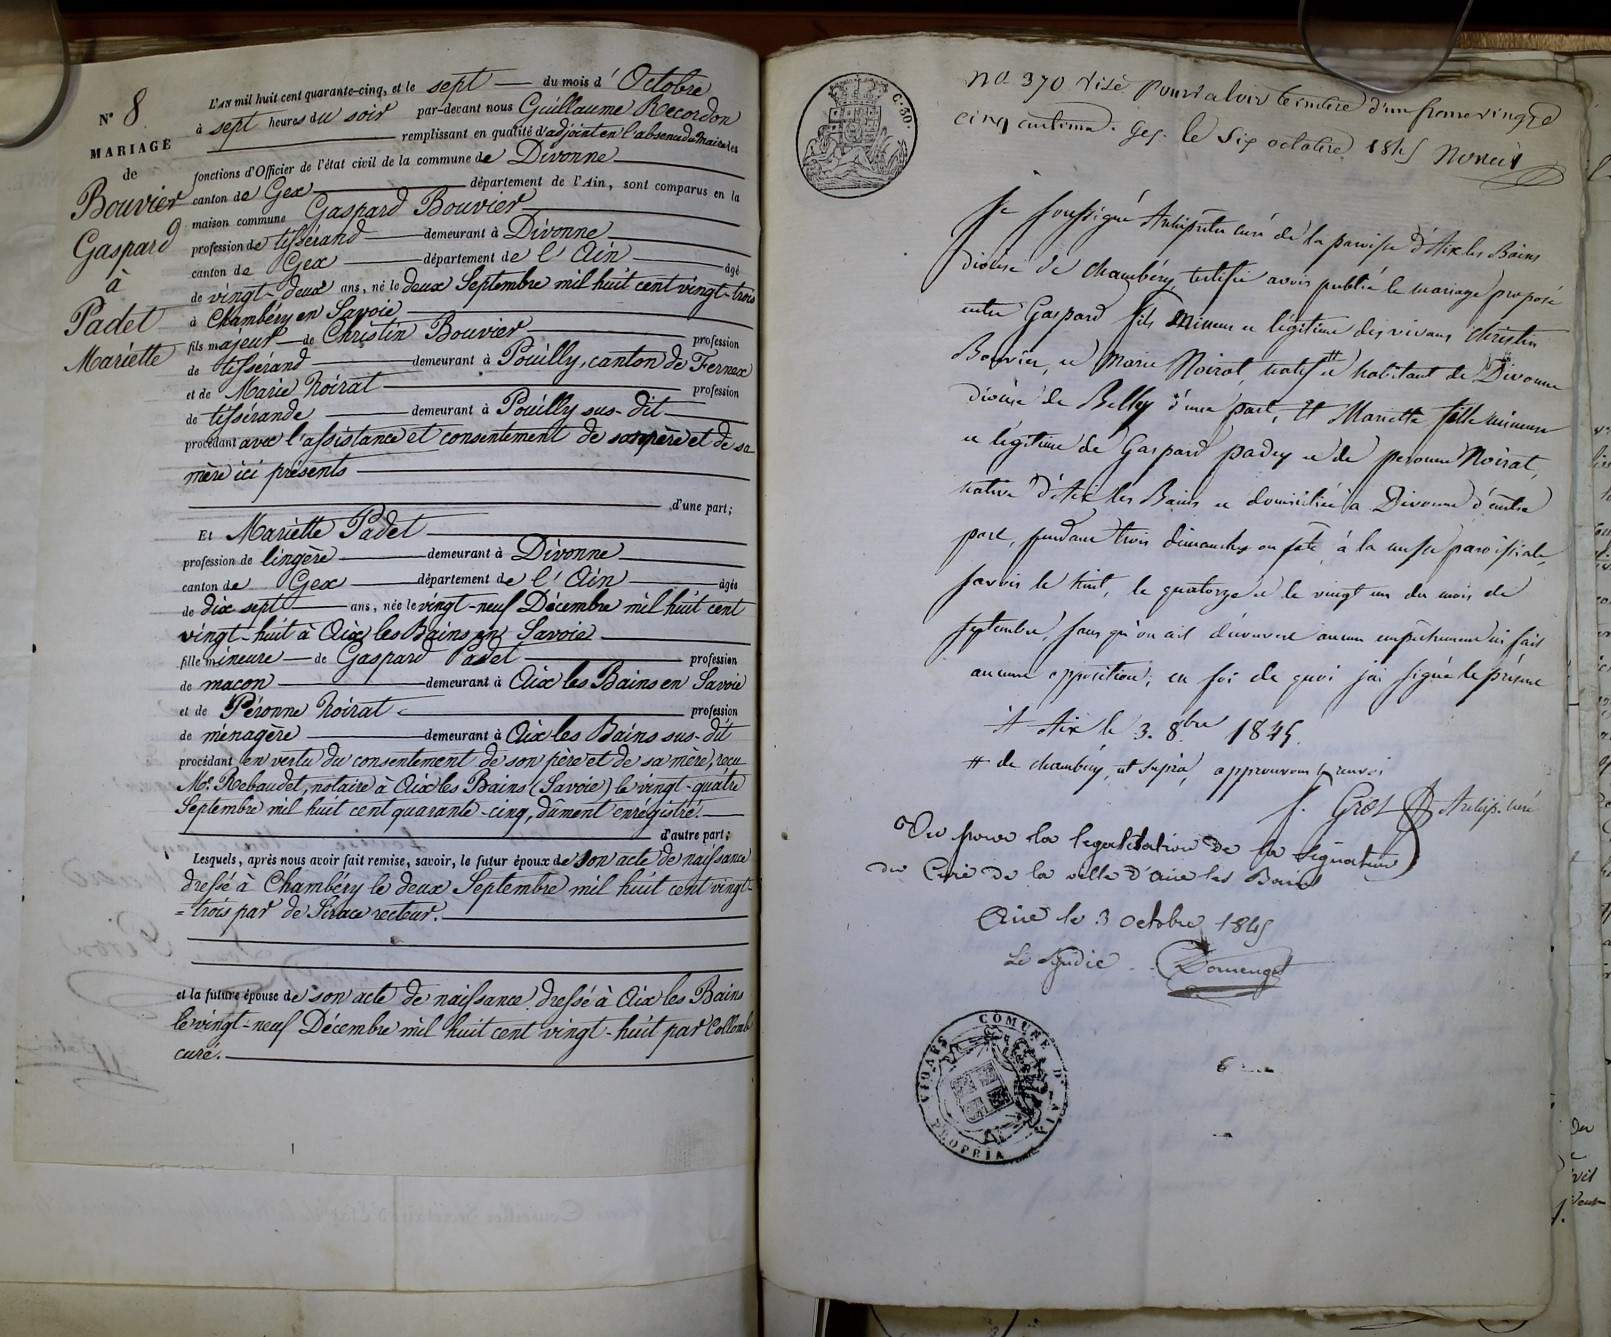 N° 8
MARIAGE
de
Bouvier
Gaspard
à
Padet
Mariette
L'AN mil huit cent quarante-cinq, et le sept du mois d'Octobre
à sept heures du soir par-devant nous Guillaume Recordon
remplissant en qualité d'adjoint en l'absence du Maire les
fonctions d'Officier de l'état civil de la commune de Divonne
canton de Gex département de l'Ain, sont comparus en la
maison commune Gaspard Bouvier
profession de tissérand demeurant à Divonne
canton de Gex département de l'Ain âgé
de vingt-deux ans, né le deux Septembre mil huit cent vingt-trois
à Chambéry en Savoie
fils majeur de Christin Bouvier profession
de tissérand demeurant à Pouilly, canton de Fernex
et de Marie Noirat profession
de tissérande demeurant à Pouilly sus-dit
procédant avec l'assistance et consentement de son père et de sa
mère ici présents
d'une part;
Et Mariette Padet
profession de lingère demeurant à Divonne
canton de Gex département de l'Ain âgée
de dix sept ans, née le vingt-neuf Décembre mil huit cent
vingt-huit à Aix les Bains en Savoie
fille mineure de Gaspard Padet profession
de macon demeurant à Aix les Bains en Savoie
et de Péronne Noirat profession
de ménagère demeurant à Aix les Bains sus-dit
procédant en vertu du consentement de son père et de sa mère, reçu
Me. Rebaudet, notaire à Aix les Bains (Savoie) le vingt-quatre
Septembre mil huit cent quarante-cinq, dûment enregistré.
d'autre part;
Lesquels, après nous avoir fait remise, savoir, le futur époux de son acte de naissance
dressé à Chambéry le deux Septembre mil huit cent vingt-
=trois par de Sirace recteur.
et la future épouse de son acte de naissance dressé à Aix les Bains
le vingt-neuf Décembre mil huit cent vingt-huit par Collomb
curé.
C. 30.
No 370 Visé pour valoir timbre d'un franc vingt
cinq centimes. Gex le six octobre 1845
Je soussigné Archiprêtre curé de la paroisse d'Aix les Bains
diocèse de Chambéry, certifie avoir publié le mariage proposé
entre Gaspard fils mineur et légitime des vivans Christin
Bouvier, et Marie Noirat, natif # et habitant de Divonne
diocèse de Belley d'une part, Et Mariette fille mineure
et légitime de Gaspard Padey et de peronne Noirat,
native d'Aix les Bains et domiciliée à Divonne d'autre
part, pendant trois dimanches ou fête, à la messe paroissiale,
savoir le huit, le quatorze et le vingt un du mois de
septembre, sans qu'on ait découvert aucun empêchement ni fait
aucune opposition; en foi de quoi j'ai signé le présent
A Aix le 3. 8bre 1845.
# de chambéry, ut supra, approuvons le renvoi
Archip. curé
Vu pour la légalisation de la signature
du Curé de la ville d'aix les Bains
Aix le 3 octobre 1845
Le Syndic Domenget
COMUNE D'AIX
PROPRIA VIRTUS